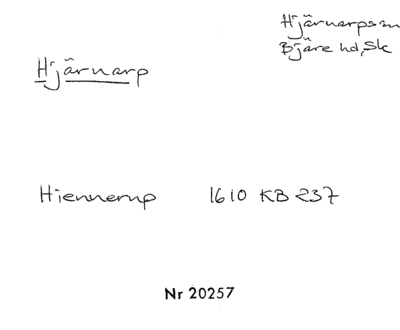 Hjärnarpssn
Bjäre hd, Sk
Hjärnarp
Hiennerup 1610 KB 237
Nr 20257